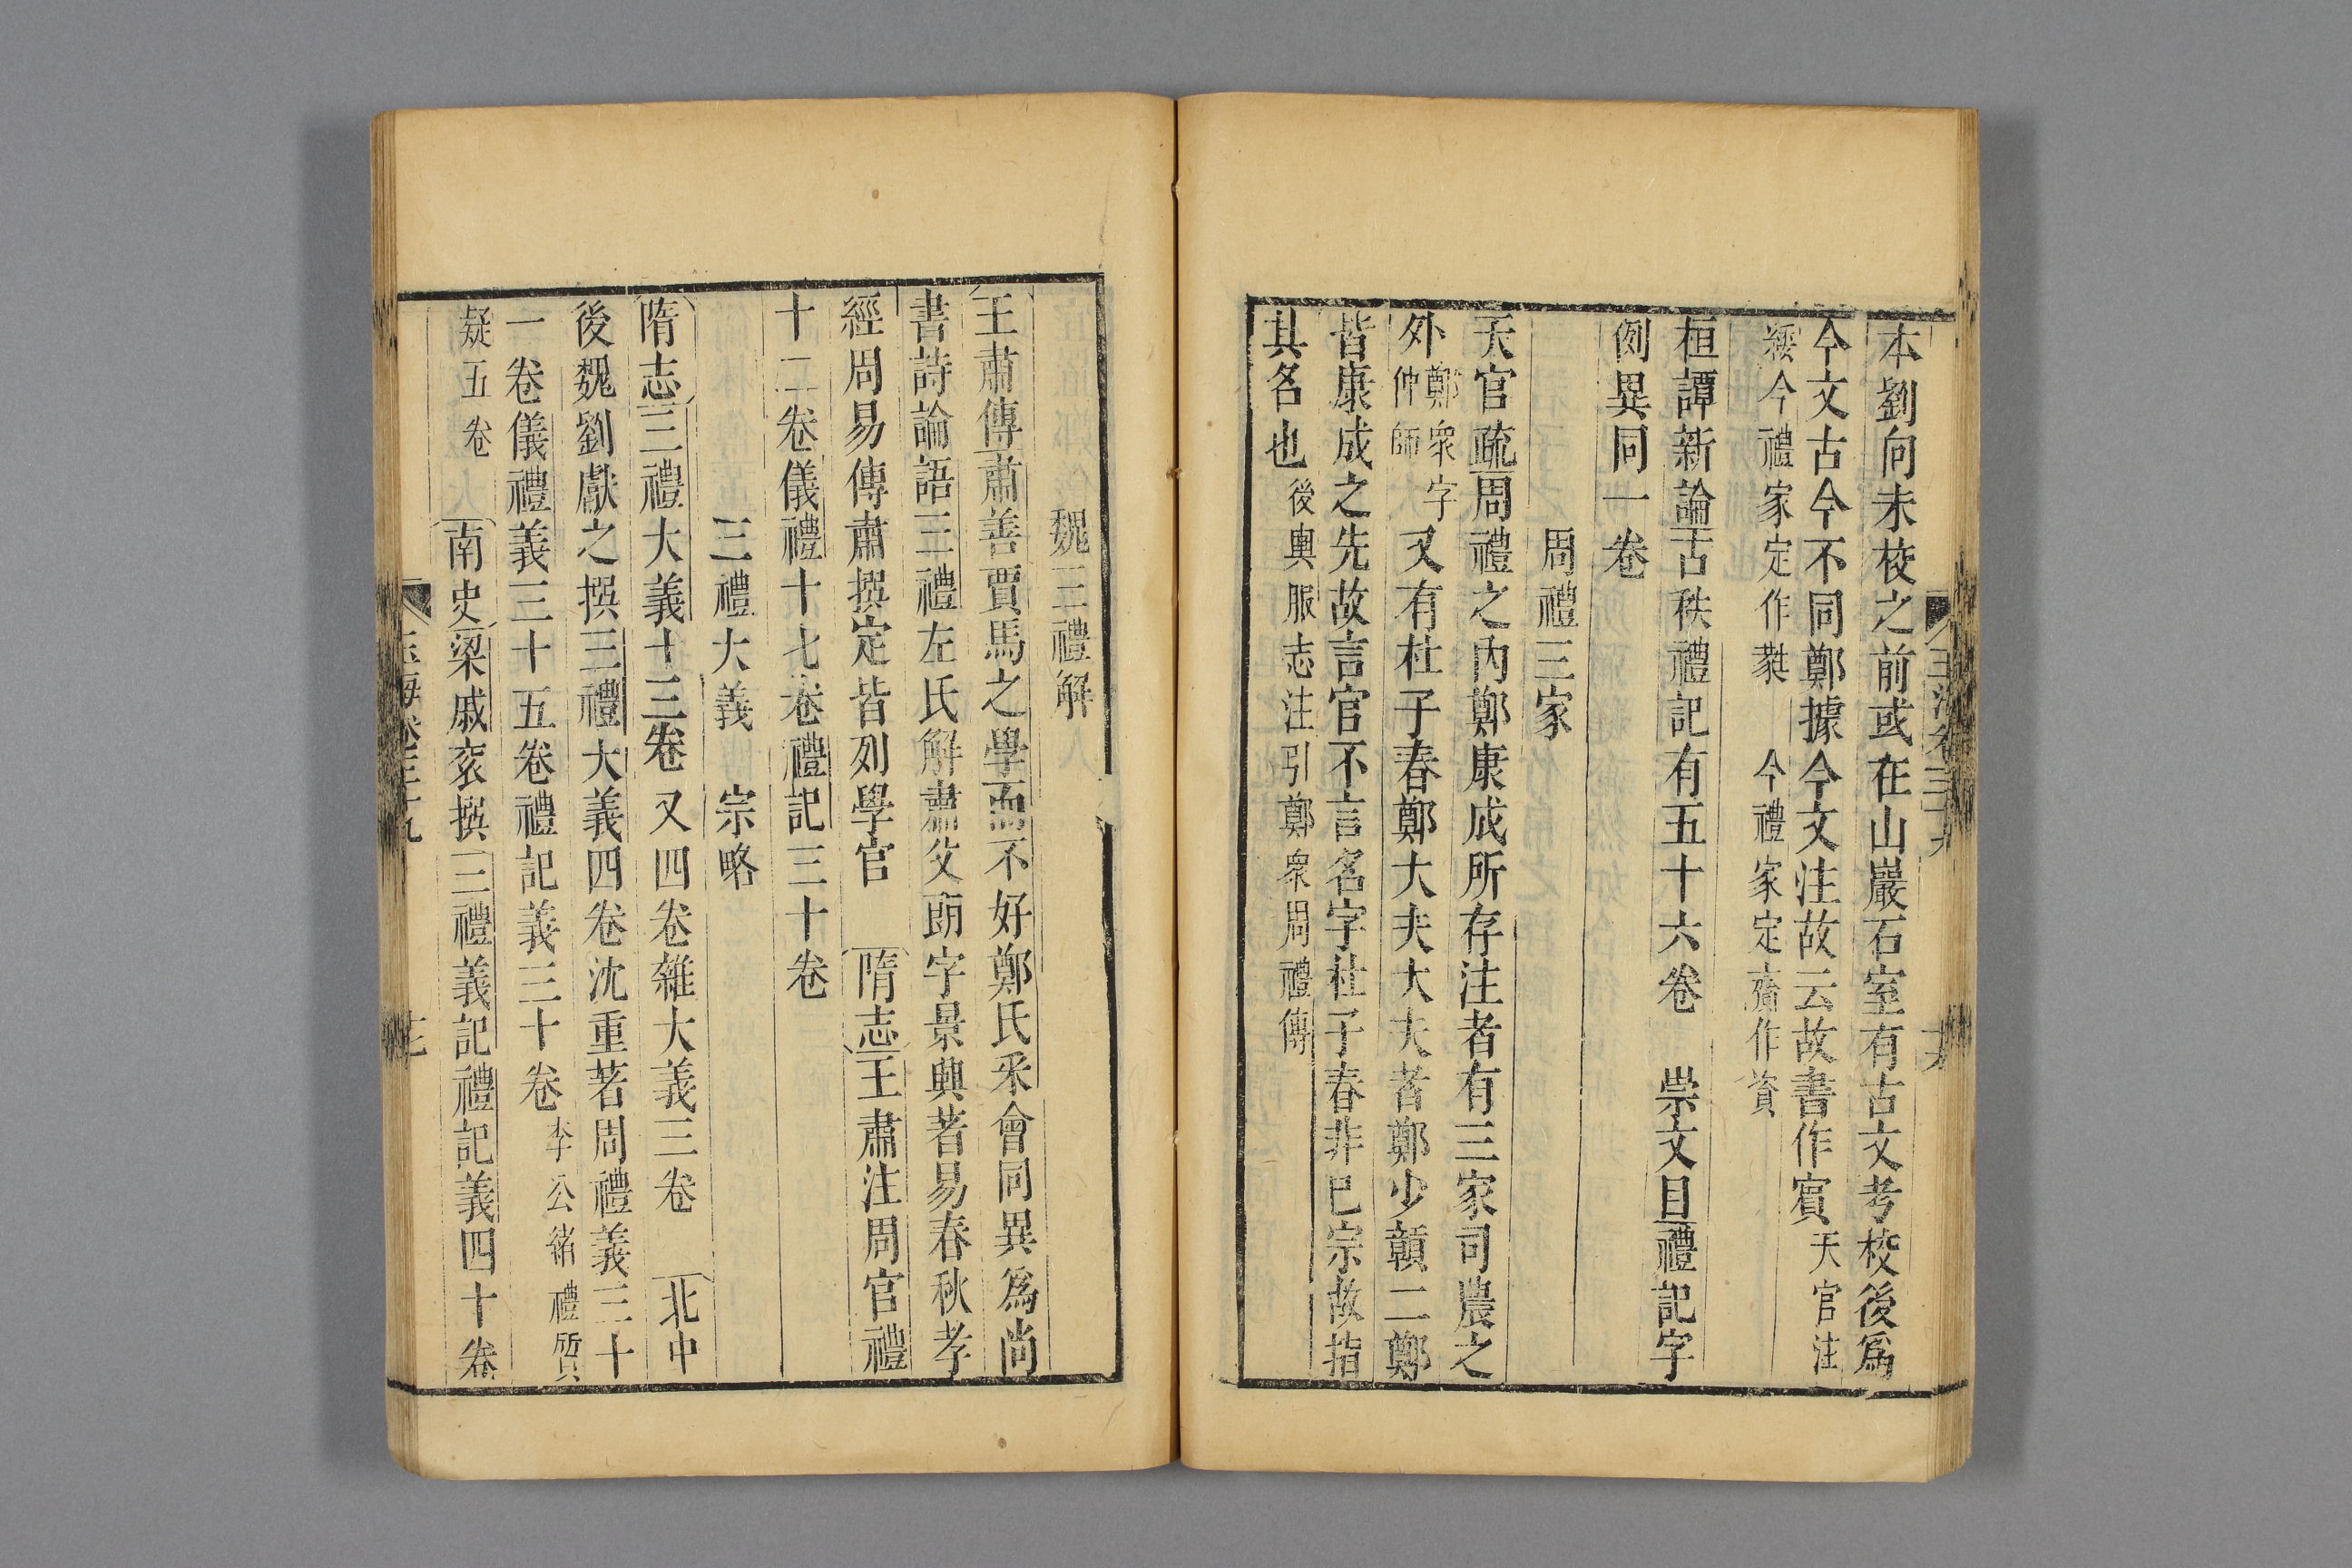 本劉向未校之前或在山巖石室有古文考校後爲
今文古今不同鄭據今文注故云故書作賓天官注
緌今禮家定作蕤　今禮家定齎作資
桓譚新論古秩禮記有五十六卷　崇文目禮記字
例異同一卷
周禮三家
天官疏周禮之內鄭康成所存注者有三家司農之
外鄭衆字仲師又有杜子春鄭大夫大夫者鄭少贛二鄭
皆康成之先故言官不言名字杜子春非已宗故指
其名也後輿服志注引鄭衆周禮傳
魏三禮解
王肅傳肅善賈馬之學而不好鄭氏采會同異爲尚
書詩論語三禮左氏解肅父朗字景興著易春秋孝
經周易傳肅撰定皆列學官　隋志王肅注周官禮
十二卷儀禮十七卷禮記三十卷
三禮大義　宗略
隋志三禮大義十三卷又四卷雜大義三卷　北中
後魏劉獻之撰三禮大義四卷沈重著周禮義三十
一卷儀禮義三十五卷禮記義三十卷李公緒禮質
疑五卷　南史梁戚袞撰三禮義記禮記義四十卷
玉海卷三十九